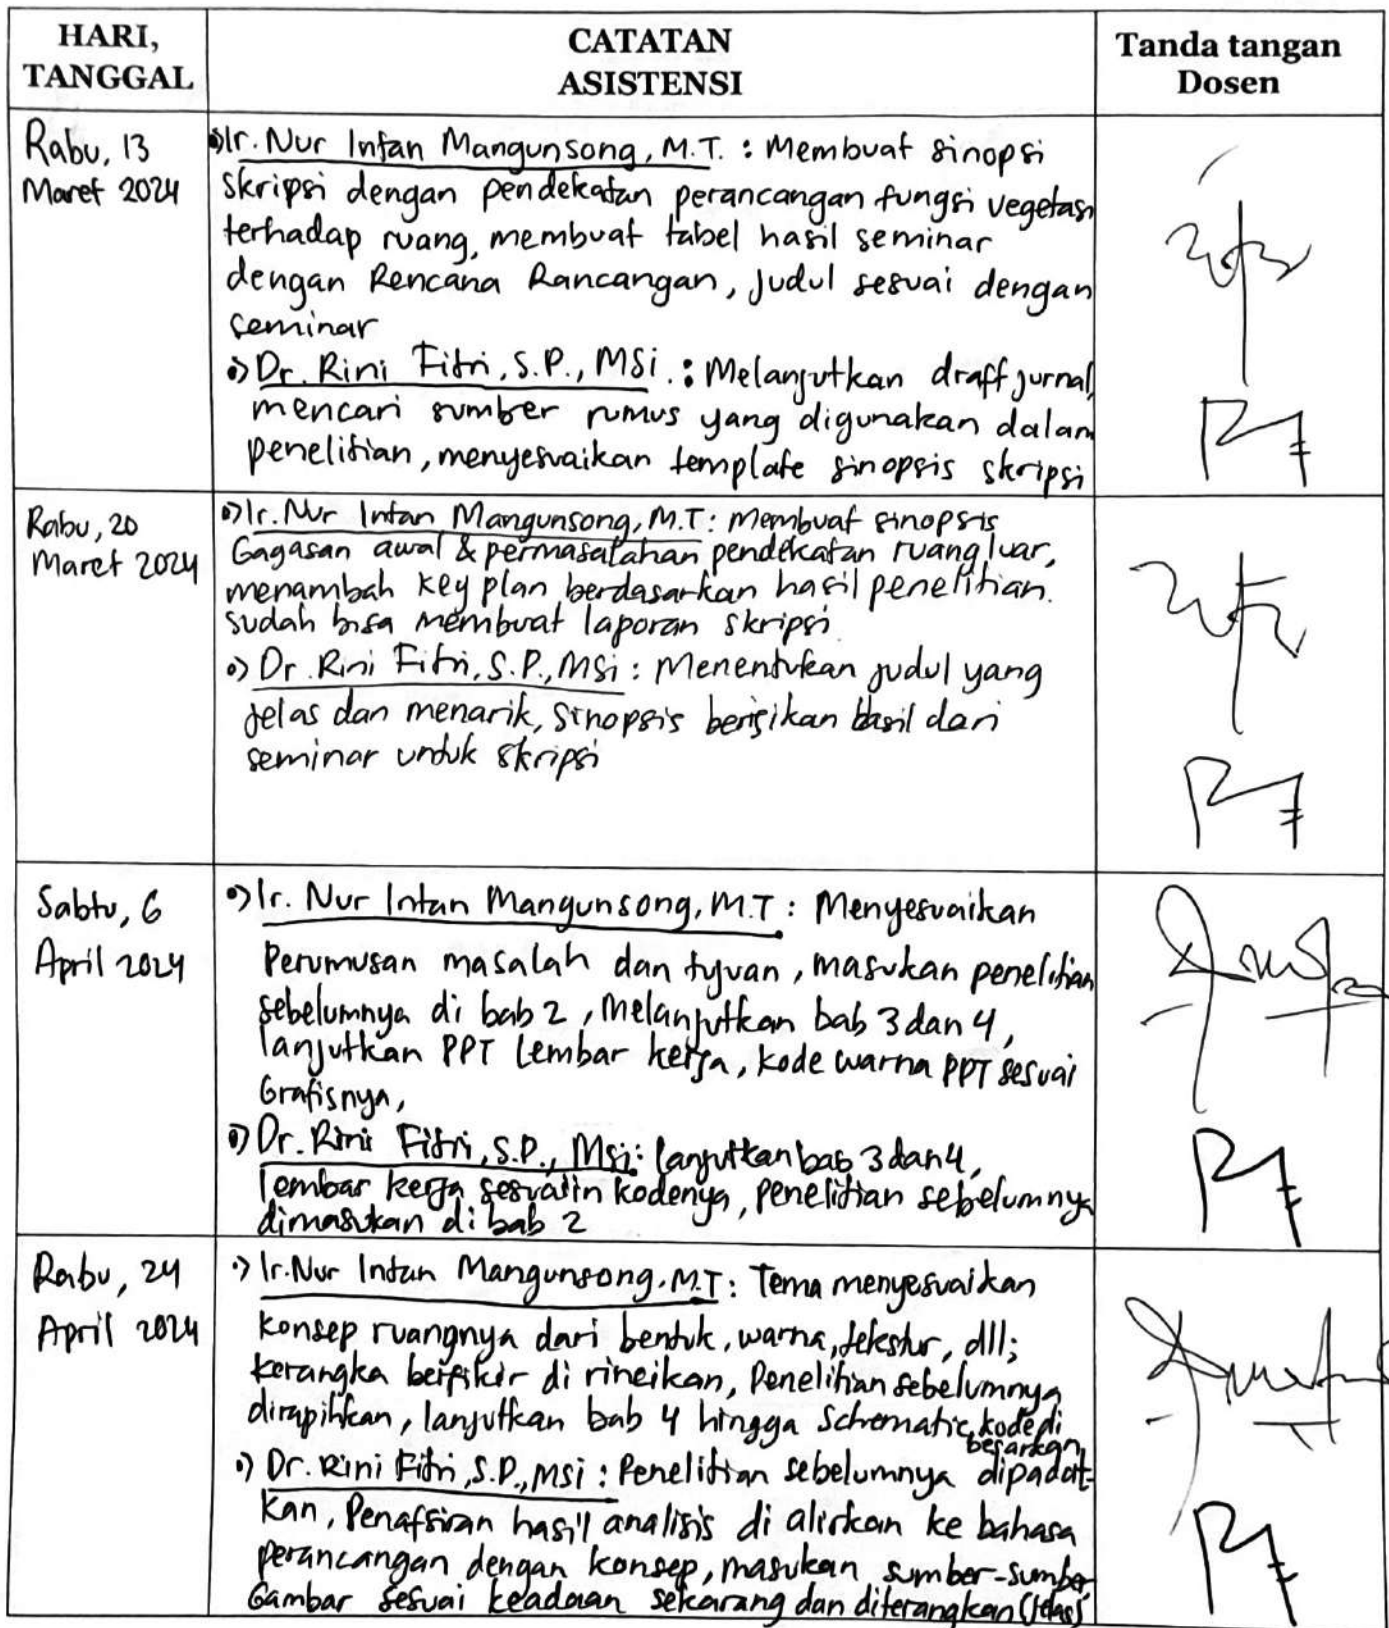 HARI,
TANGGAL
CATATAN
ASISTENSI
Tanda tangan
Dosen
Rabu, 13
Maret 2024
Ir. Nur Intan Mangunsong, M.T. : Membuat sinopsi
skripsi dengan pendekatan perancangan fungsi vegetasi
terhadap ruang, membuat tabel hasil seminar
dengan Rencana Rancangan, Judul sesuai dengan
seminar
Dr. Rini Fitri, S.P., MSi. : Melanjutkan draff jurnal,
mencari sumber rumus yang digunakan dalam
penelitian, menyesuaikan template sinopsis skripsi
Rabu, 20
Maret 2024
Ir. Nur Intan Mangunsong, M.T : membuat sinopsis
Gagasan awal & permasalahan pendekatan ruang luar,
menambah key plan berdasarkan hasil penelitian.
sudah bisa membuat laporan skripsi
Dr. Rini Fitri, S.P., MSi : Menentukan judul yang
jelas dan menarik, sinopsis berisikan hasil dari
seminar untuk skripsi
Sabtu, 6
April 2024
Ir. Nur Intan Mangunsong, M.T : Menyesuaikan
Perumusan masalah dan tujuan, masukan penelitian
sebelumnya di bab 2, melanjutkan bab 3 dan 4,
lanjutkan PPT lembar kerja, kode warna PPT sesuai
Grafisnya,
Dr. Rini Fitri, S.P., MSi : lanjutkan bab 3 dan 4,
lembar kerja sesuaiin kodenya, penelitian sebelumnya
dimasukan di bab 2
Rabu, 24
April 2024
Ir. Nur Intan Mangunsong, M.T : Tema menyesuaikan
konsep ruangnya dari bentuk, warna, tekstur, dll;
kerangka berfikir di rineikan, Penelitian sebelumnya
dirapihkan, lanjutkan bab 4 hingga Schematic, kode di
besarkan,
Dr. Rini Fitri, S.P., MSi : Penelitian sebelumnya dipadat-
kan, Penafsiran hasil analisis di alirkan ke bahasa
perancangan dengan konsep, masukan sumber-sumber
Gambar sesuai keadaan sekarang dan diterangkan (jelas)